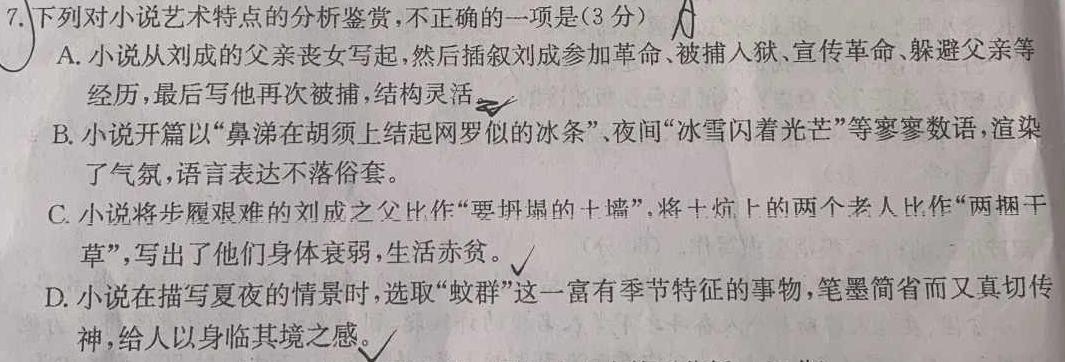 7.下列对小说艺术特点的分析鉴赏,不正确的一项是(3分)
A. 小说从刘成的父亲丧女写起,然后插叙刘成参加革命、被捕入狱、宣传革命、躲避父亲等
经历,最后写他再次被捕,结构灵活。
B. 小说开篇以“鼻涕在胡须上结起网罗似的冰条”、夜间“冰雪闪着光芒”等寥寥数语,渲染
了气氛,语言表达不落俗套。
C. 小说将步履艰难的刘成之父比作“要坍塌的土墙”,将土炕上的两个老人比作“两捆干
草”,写出了他们身体衰弱,生活赤贫。
D. 小说在描写夏夜的情景时,选取“蚊群”这一富有季节特征的事物,笔墨简省而又真切传
神,给人以身临其境之感。